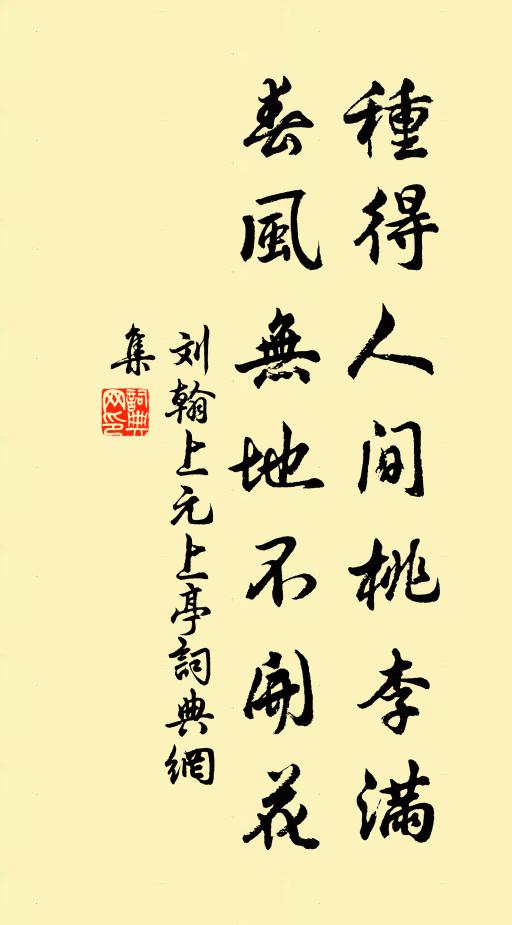 種得人间桃李满
春風無地不開花
刘翰上元上亭詞典網
集
詞典
网印